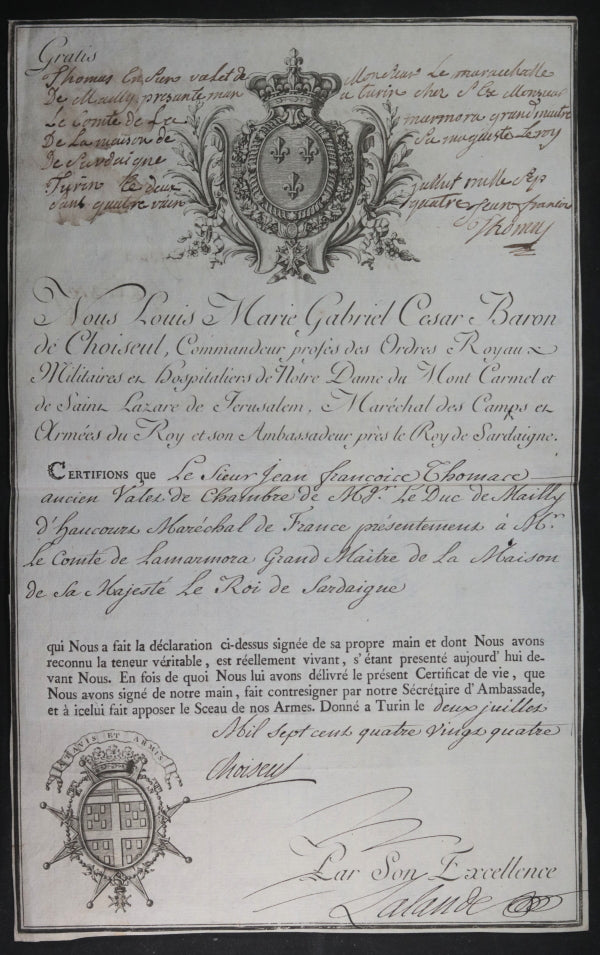 Gratis
Thomas Ensien valet de Monsieur Le marechalle
De Mailly presante man a turin cher S Ex Monsieur
Le Comte de La marmora grand maitre
De La maison de Sa magiste Le roy
De Sardaigne
Turin le deux juillut mille Sep
Sans quatre vain quatre jean francoi
Thomas
Nous Louis Marie Gabriel Cesar Baron
de Choiseul, Commandeur profès des Ordres Royaux
Militaires et Hospitaliers de Notre Dame du Mont Carmel et
de Saint Lazare de Jerusalem, Maréchal des Camps et
Armées du Roy et son Ambassadeur près le Roy de Sardaigne.
CERTIFIONS que Le Sieur Jean francoice Thomace
ancien Valet de Chambre de Mgr. Le Duc de Mailly
d'haucourt Maréchal de France présentement à Mr.
Le Comte de Lamarmora Grand Maitre de La Maison
de Sa Majesté Le Roi de Sardaigne
qui Nous a fait la déclaration ci-dessus signée de sa propre main et dont Nous avons
reconnu la teneur véritable, est réellement vivant, s'étant presenté aujourd'hui de-
vant Nous. En fois de quoi Nous lui avons délivré le présent Certificat de vie, que
Nous avons signé de notre main, fait contresigner par notre Sécrétaire d'Ambassade,
et à icelui fait apposer le Sceau de nos Armes. Donné a Turin le deux juillet
Mil sept cent quatre vingt quatre
Choiseul
ET ARMIS
Par Son Excellence
Lalande